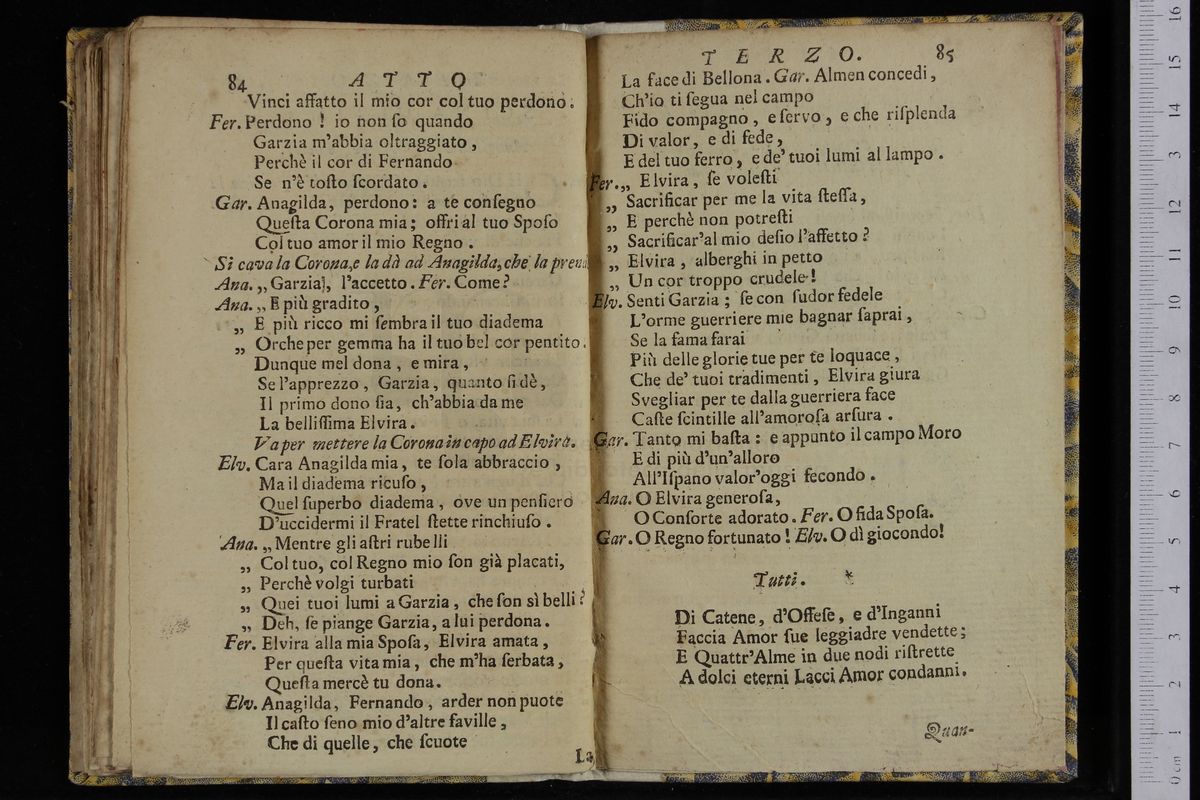 84 ATTO
Vinci affatto il mio cor col tuo perdono.
Fer. Perdono ! io non ſo quando
Garzia m'abbia oltraggiato ,
Perchè il cor di Fernando
Se n'è toſto ſcordato .
Gar. Anagilda, perdono: a te conſegno
Queſta Corona mia; offri al tuo Spoſo
Col tuo amor il mio Regno .
Si cava la Corona, e la dà ad Anagilda, che la prend
Ana. „ Garzia, l'accetto . Fer. Come?
Ana. „ E più gradito ,
„ E più ricco mi ſembra il tuo diadema
„ Or che per gemma ha il tuo bel cor pentito.
Dunque mel dona , e mira ,
Se l'apprezzo , Garzia, quanto ſi dè,
Il primo dono ſia, ch'abbia da me
La belliſſima Elvira .
Va per mettere la Corona in capo ad Elvira.
Elv. Cara Anagilda mia, te ſola abbraccio ,
Ma il diadema ricuſo ,
Quel ſuperbo diadema , ove un penſiero
D'uccidermi il Fratel ſtette rinchiuſo .
Ana. „ Mentre gli aſtri rubelli
„ Col tuo, col Regno mio ſon già placati,
„ Perchè volgi turbati
„ Quei tuoi lumi a Garzia , che ſon sì belli ?
„ Deh, ſe piange Garzia, a lui perdona.
Fer. Elvira alla mia Spoſa, Elvira amata ,
Per queſta vita mia , che m'ha ſerbata ,
Queſta mercè tu dona.
Elv. Anagilda, Fernando , arder non puote
Il caſto ſeno mio d'altre faville ,
Che di quelle, che ſcuote
La
TERZO. 85
La face di Bellona . Gar. Almen concedi ,
Ch'io ti ſegua nel campo
Fido compagno , e ſervo , e che riſplenda
Di valor, e di fede ,
E del tuo ferro, e de' tuoi lumi al lampo .
Fer. „ Elvira, ſe voleſti
„ Sacrificar per me la vita ſteſſa,
„ E perchè non potreſti
„ Sacrificar'al mio deſio l'affetto ?
„ Elvira , alberghi in petto
„ Un cor troppo crudele !
Elv. Senti Garzia ; ſe con ſudor fedele
L'orme guerriere mie bagnar ſaprai ,
Se la fama farai
Più delle glorie tue per te loquace ,
Che de' tuoi tradimenti , Elvira giura
Svegliar per te dalla guerriera face
Caſte ſcintille all'amoroſa arſura .
Gar. Tanto mi baſta : e appunto il campo Moro
E di più d'un'alloro
All'Iſpano valor'oggi fecondo .
Ana. O Elvira generoſa,
O Conſorte adorato . Fer. O fida Spoſa.
Gar. O Regno fortunato ! Elv. O dì giocondo!
Tutti. *
Di Catene, d'Offeſe, e d'Inganni
Faccia Amor ſue leggiadre vendette;
E Quattr'Alme in due nodi riſtrette
A dolci eterni Lacci Amor condanni.
Quan-
0 cm 1 2 3 4 5 6 7 8 9 10 11 12 13 14 15 16